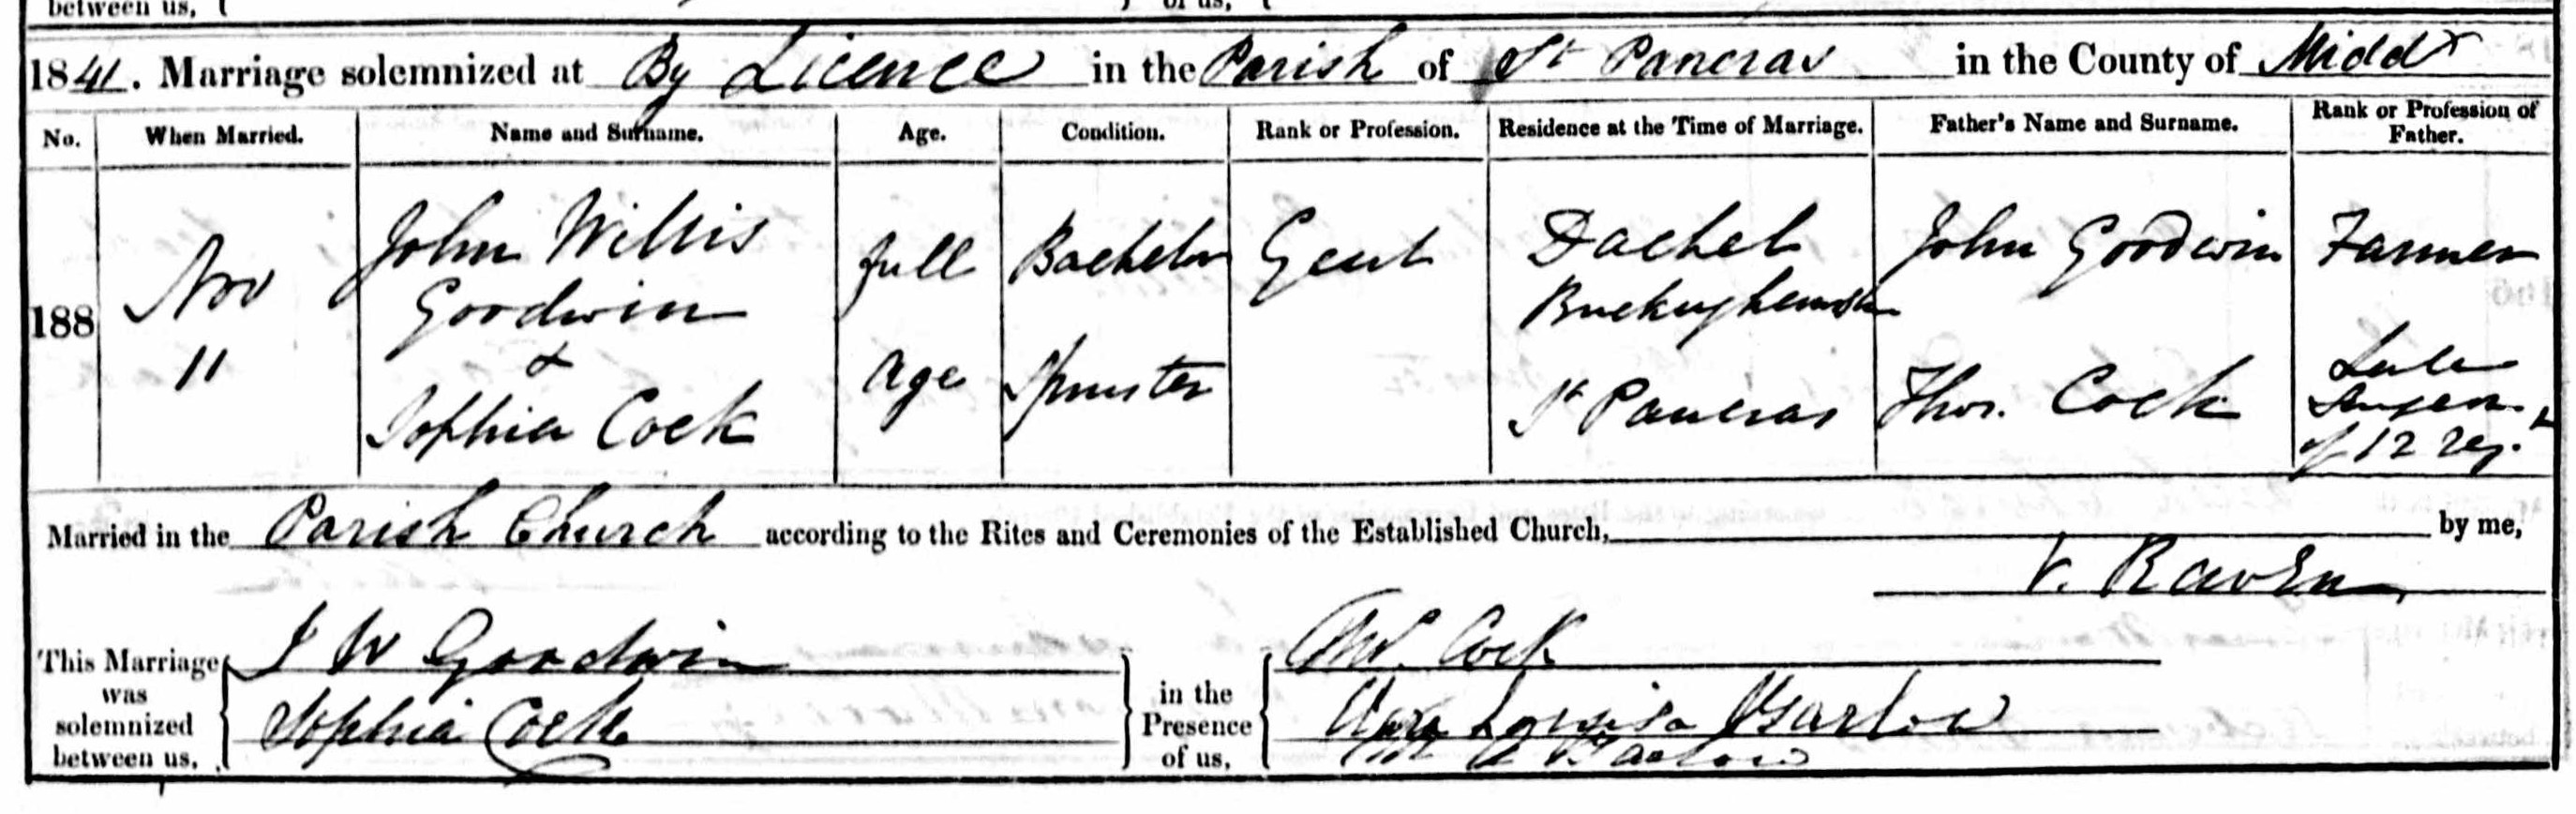 between us, { } of us, {
1841. Marriage solemnized at By Licence in the Parish of St Pancras in the County of Middx
No. When Married. Name and Surname. Age. Condition. Rank or Profession. Residence at the Time of Marriage. Father's Name and Surname. Rank or Profession of Father.
188 Nov 11
John Willis Goodwin full Bachelor Gent Dachet Buckinghamsh John Goodwin Farmer
&
Sophia Cock age Spinster St Pancras Thos. Cock Late Surgeon of 12 reg.t
Married in the Parish Church according to the Rites and Ceremonies of the Established Church, by me,
V. Raven
This Marriage was solemnized between us, { J W Goodwin
Sophia Cock }
in the Presence of us, { Cock
Louisa Barlow
Barlow